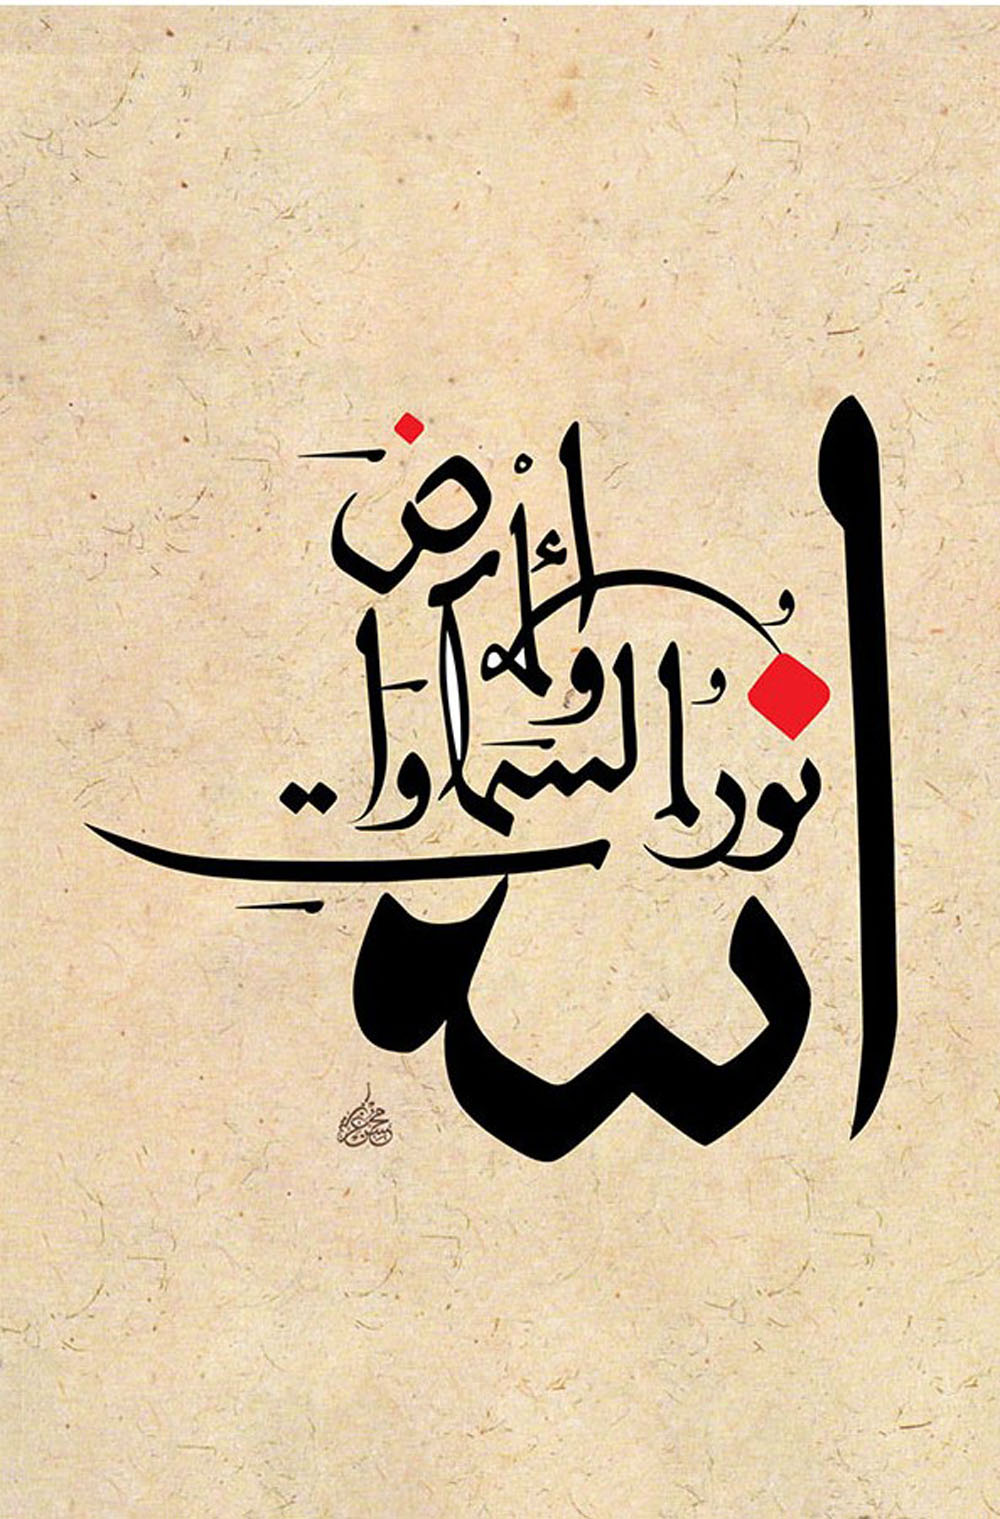 الله
نُورُ السَّمَاوَاتِ
وَالْأَرْضِ